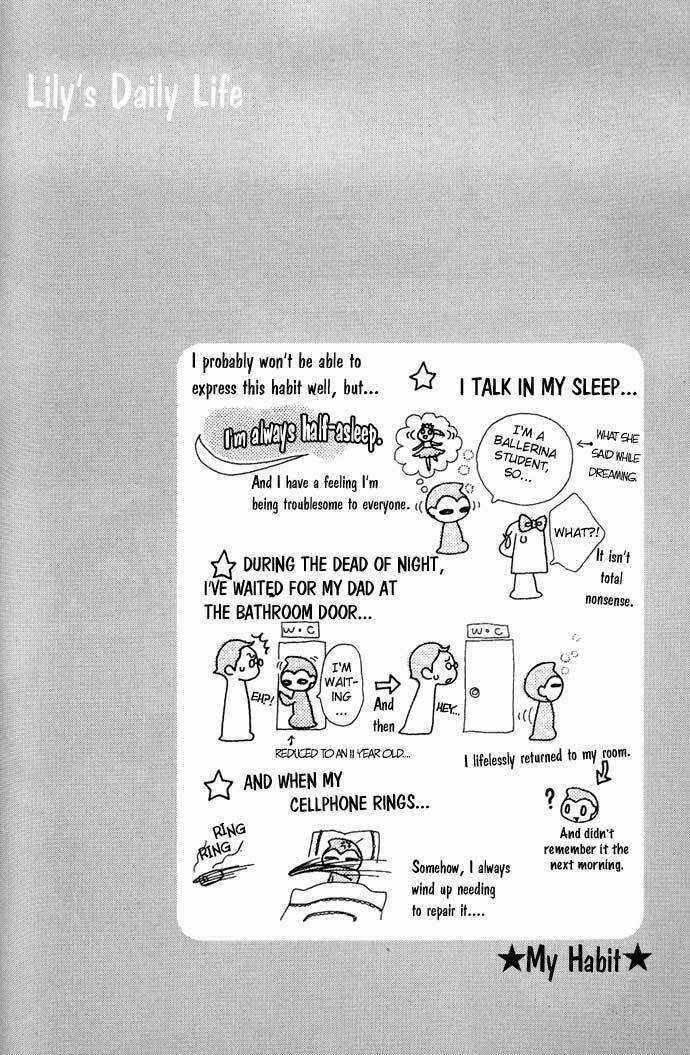 Lily's Daily Life
I probably won't be able to
express this habit well, but...
I'm always half-asleep.
And I have a feeling I'm
being troublesome to everyone.
☆ I TALK IN MY SLEEP...
I'M A
BALLERINA
STUDENT,
SO...
← WHAT SHE
SAID WHILE
DREAMING.
WHAT?!
It isn't
total
nonsense.
☆ DURING THE DEAD OF NIGHT,
I'VE WAITED FOR MY DAD AT
THE BATHROOM DOOR...
W•C
EHP!
I'M
WAIT-
ING
...
REDUCED TO AN 11 YEAR OLD....
And
then
W•C
HEY...
I lifelessly returned to my room.
?
And didn't
remember it the
next morning.
☆ AND WHEN MY
CELLPHONE RINGS...
RING
RING
Somehow, I always
wind up needing
to repair it....
★My Habit★